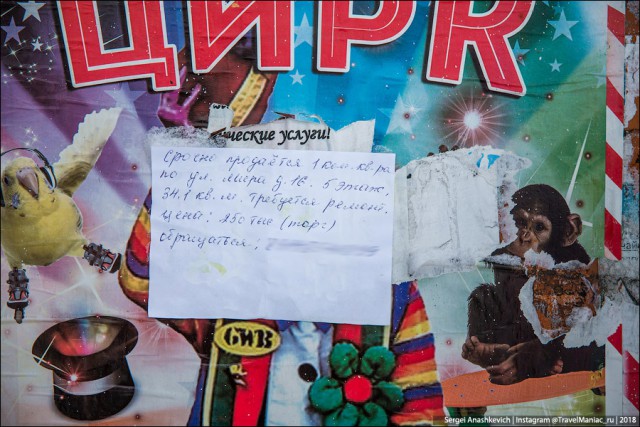 ЦИРК
ческие услуги!
Срочно продаётся 1 ком. кв-ра
по ул. Мира д. 16. 5 этаж.
34,1 кв. м. Требуется ремонт.
Цена: 250 тыс (торг)
обращаться:
БИВ
Sergei Anashkevich | Instagram @TravelManiac_ru | 2018